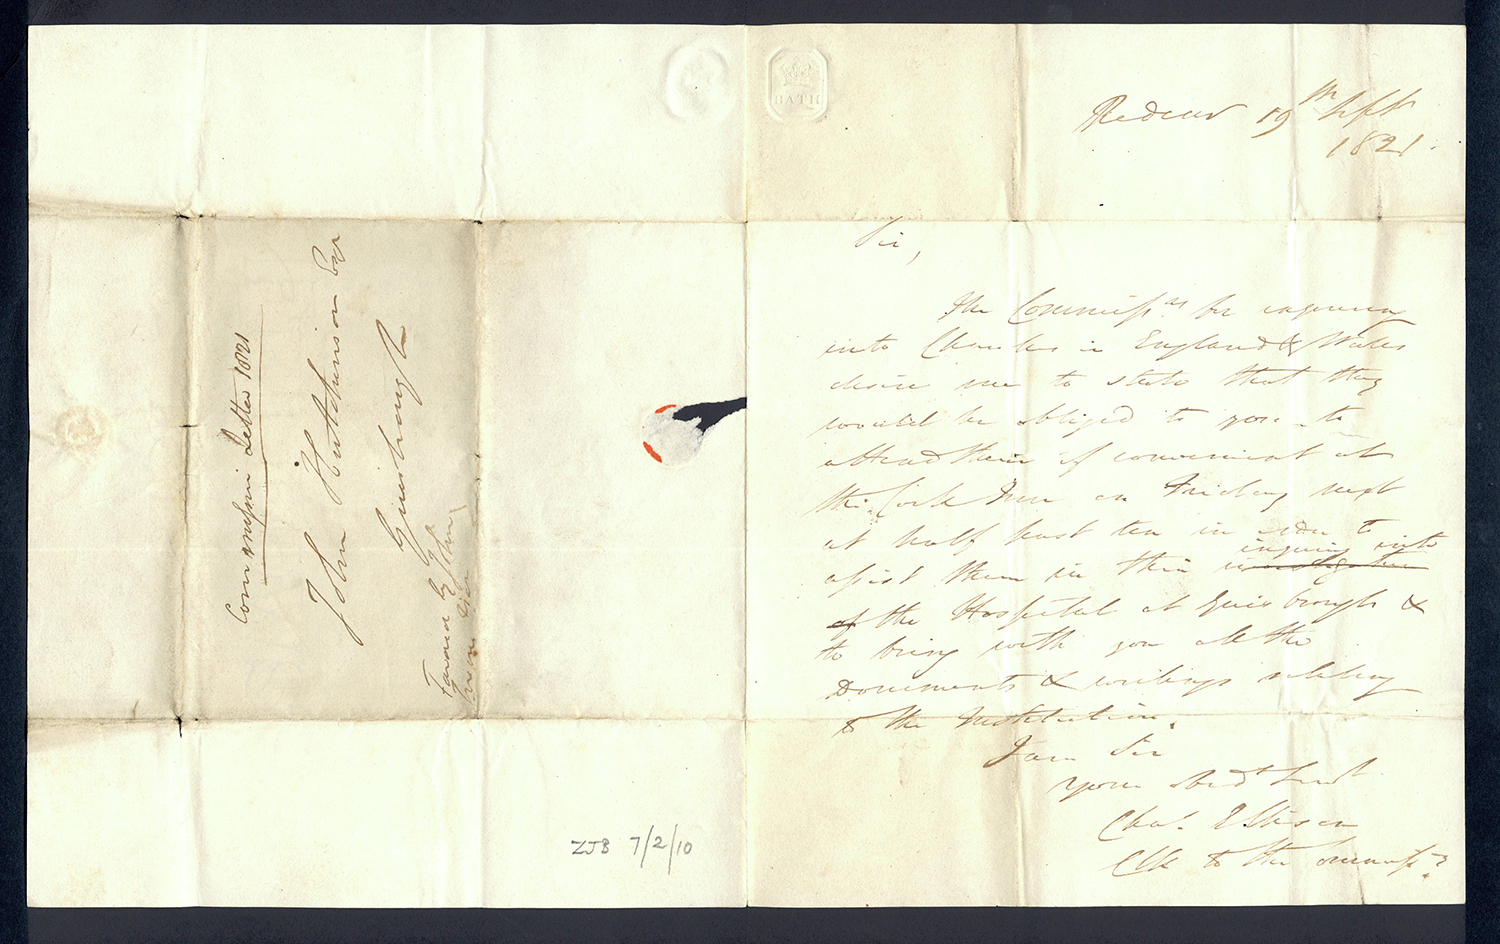 Commissn Letter 1821
John Hutchinson Esqr
Guisbrough
Favord by John
BATH
Redcar 19th Sept
1821.
Sir,
The Commissrs for enquiring
into Charities in England & Wales
desire me to state that they
would be obliged to you to
attend them if convenient at
the Cock Inn on Friday next
at half past ten in order to
assist them in their investigation inquiry into
of the Hospital at Guisbrough &
to bring with you all the
Documents & writings relating
to the Institution.
I am Sir
Your Obedt Servt
Chas. Ellison
Clk to the Commissrs
ZJB 7/2/10